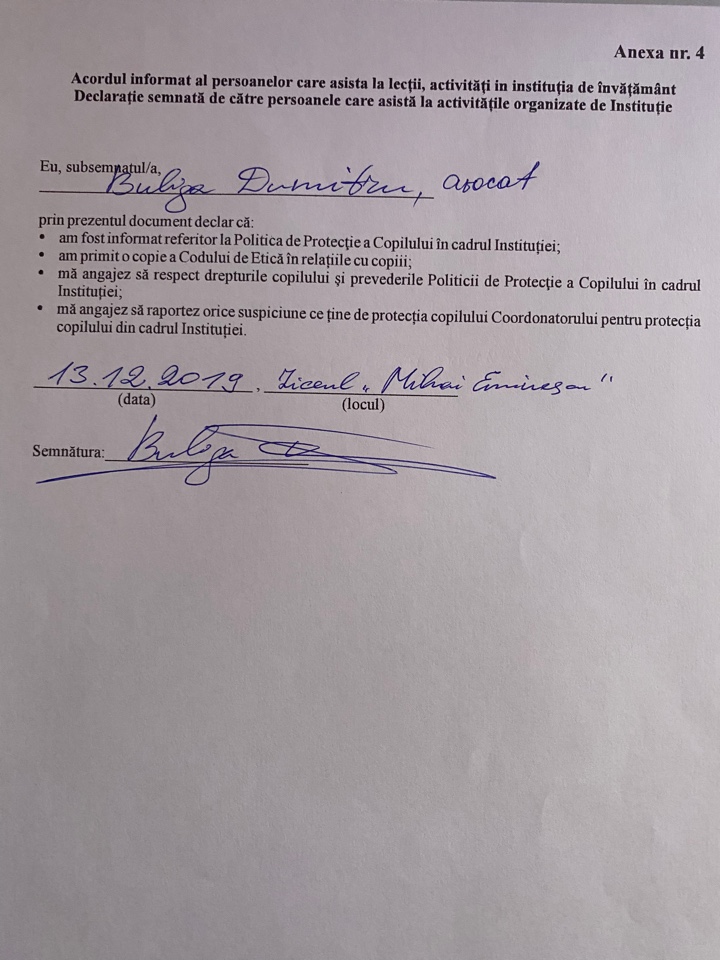 Anexa nr. 4
Acordul informat al persoanelor care asista la lecții, activități in instituția de învățământ
Declarație semnată de către persoanele care asistă la activitățile organizate de Instituție
Eu, subsemnatul/a,
Buliga Dumitru, avocat
prin prezentul document declar că:
• am fost informat referitor la Politica de Protecție a Copilului în cadrul Instituției;
• am primit o copie a Codului de Etică în relațiile cu copiii;
• mă angajez să respect drepturile copilului și prevederile Politicii de Protecție a Copilului în cadrul
Instituției;
• mă angajez să raportez orice suspiciune ce ține de protecția copilului Coordonatorului pentru protecția
copilului din cadrul Instituției.
13.12.2019, Liceul „Mihai Eminescu”
(data) (locul)
Semnătura: Buliga